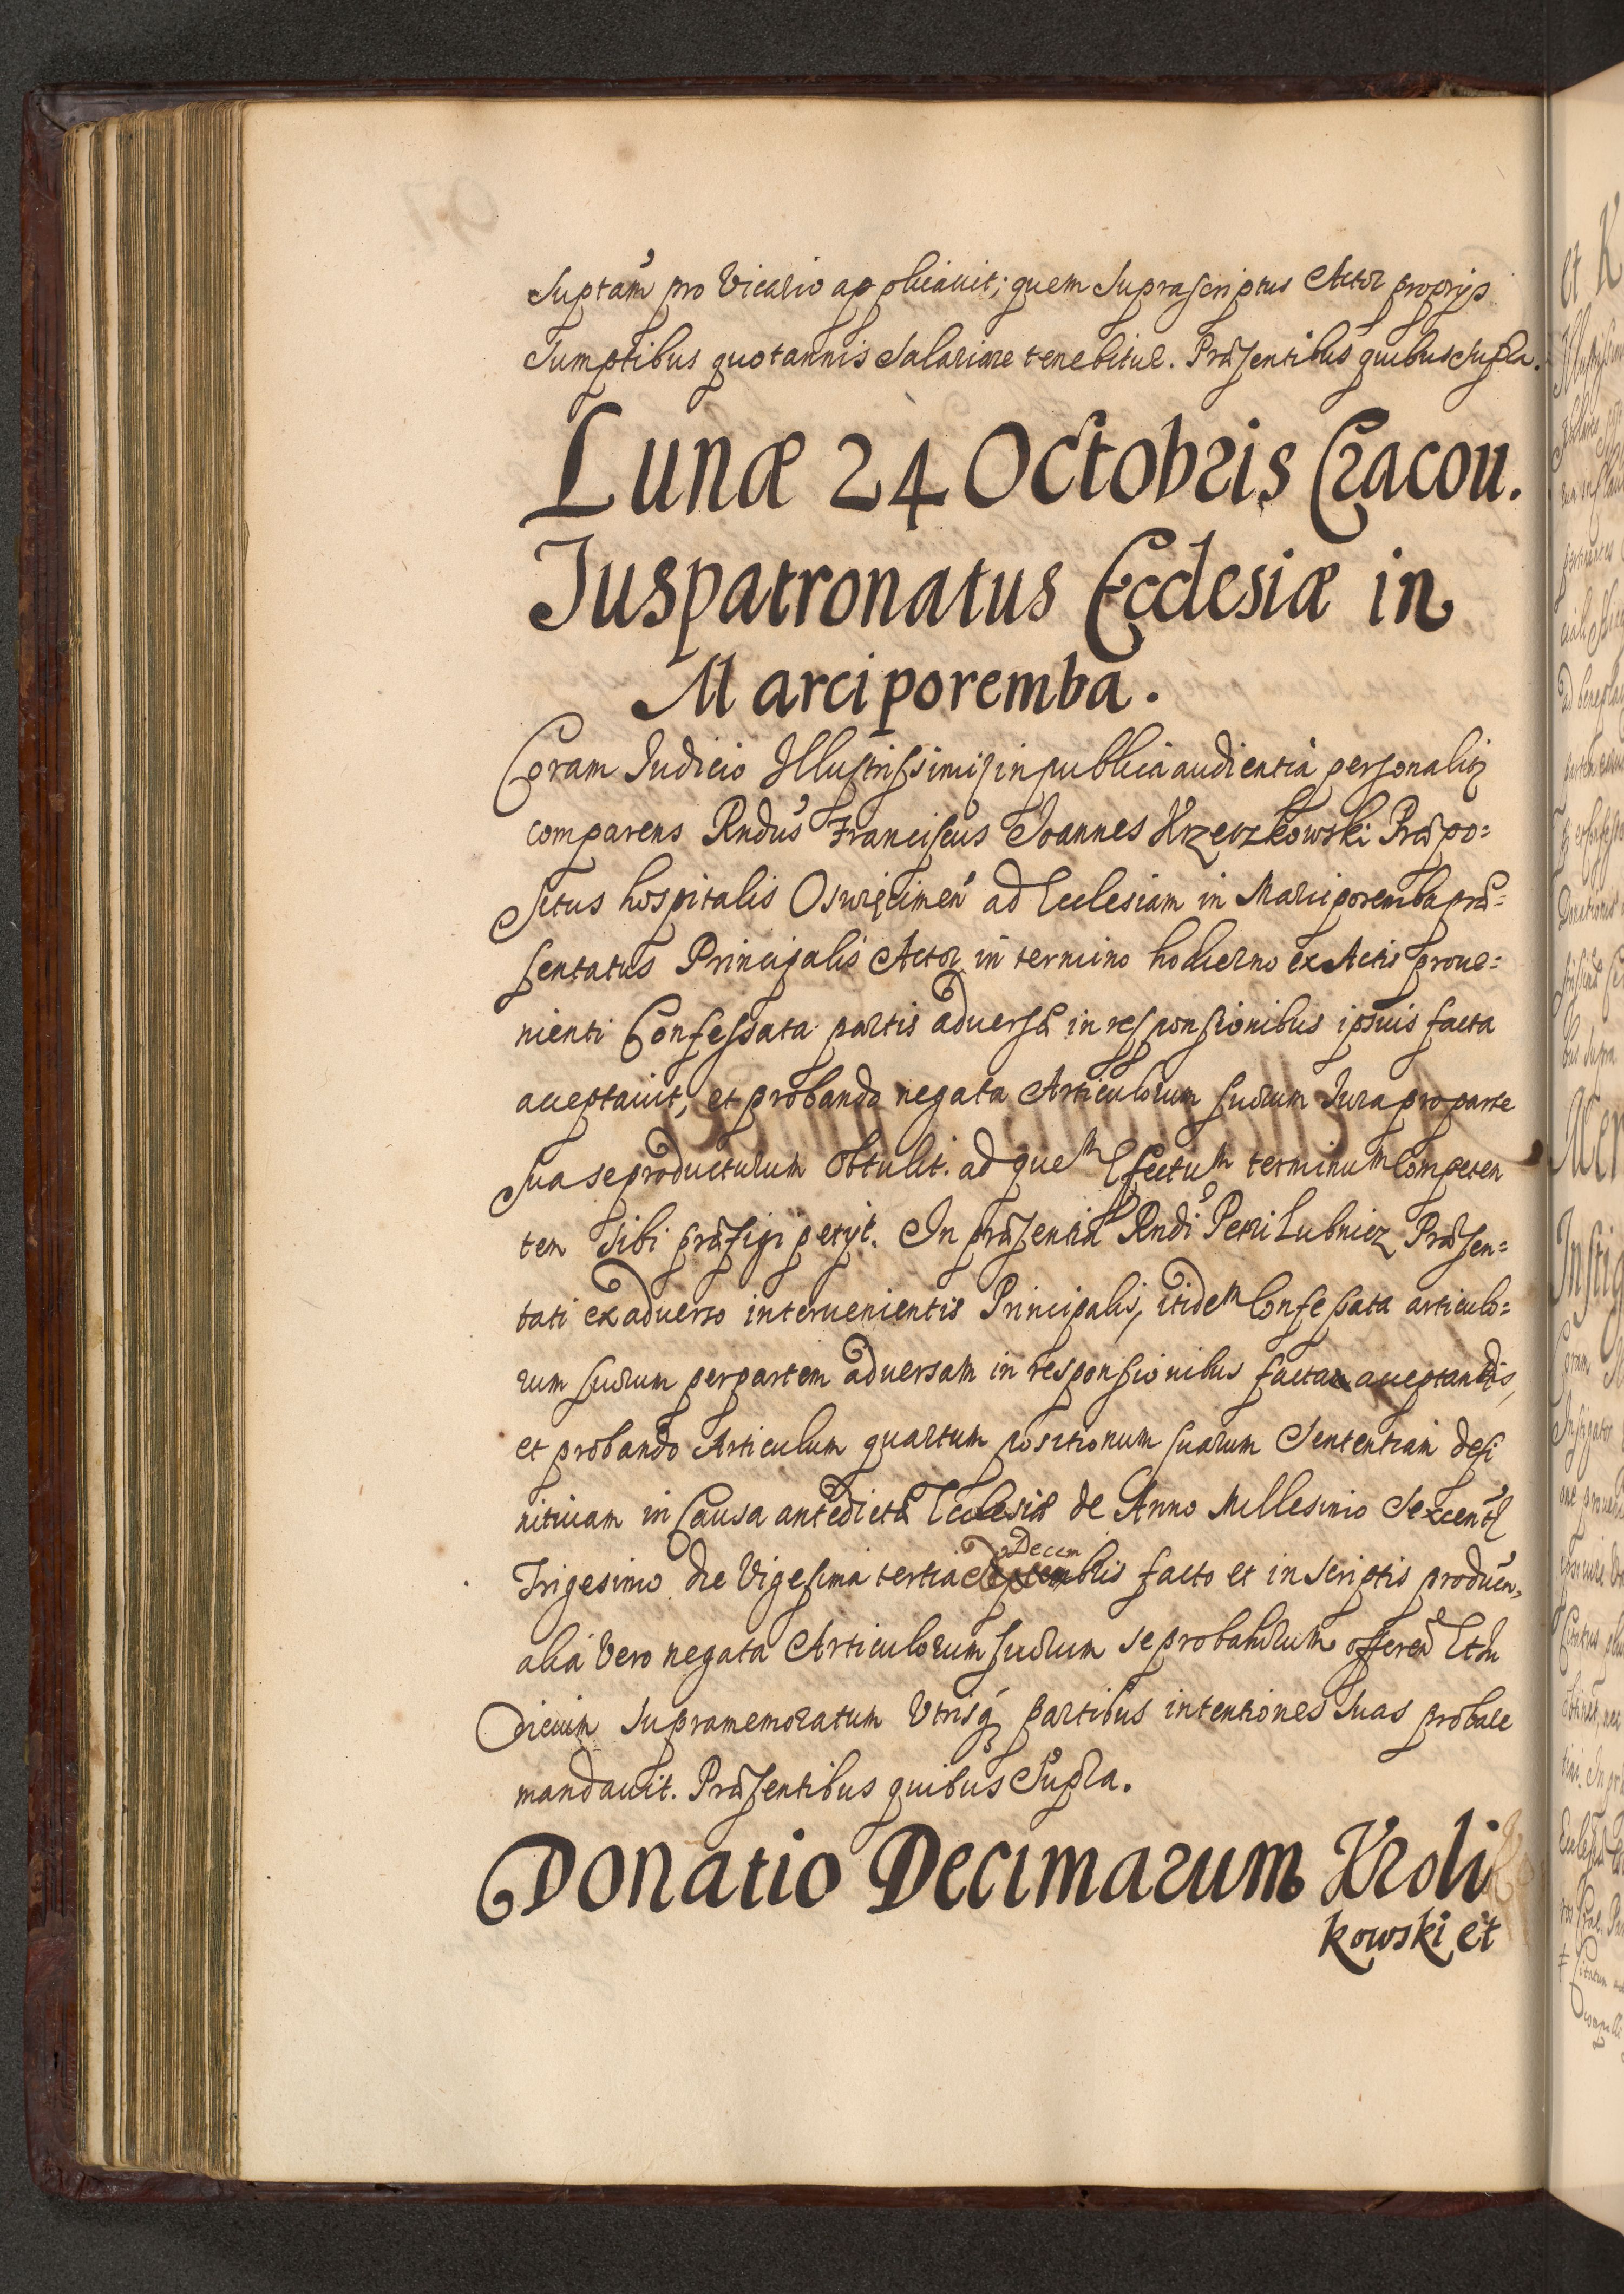 Suptam pro Vicario applicauit; quem Suprascriptus Actor proprijs
Sumptibus quotannis Salariare tenebitur. Præsentibus quibus Supra.
Lunæ 24 Octobris Cracou.
Juspatronatus Ecclesiæ in
Marciporemba.
Coram Judicio Illustrissimi in publica audientia personalir
comparens Rndus Franciscus Joannes Krzeczkowski Præpo=
situs hospitalis Oswięcimen ad Ecclesiam in Marciporemba præ=
sentatus Principalis Actor in termino hodierno ex Actis proue=
nienti Confessata partis aduersæ in responsionibus ipsius facta
acceptauit, et probando negata Articulorum suorum Jura pro parte
sua se producturum obtulit. ad quem Effectum terminum Competen
tem sibi præfigi petijt. In præsentia Rndi Petri Lubnicz Præsen=
tati ex aduerso interuenientis Principalis, itidem Confessata articulo=
rum suorum per partem aduersam in responsionibus facta acceptandis,
et probando Articulum quartum positionum suarum Sententiam defi
nitiuam in Causa antedictæ Ecclesiæ de Anno Millesimo Sexcentmo
Trigesimo die Vigesima tertia Decembris facto et in scriptis producen,
alia Vero negata Articulorum suorum se probaturum offeren Et Ju
dicium Supramemoratum Vtrisq partibus intentiones suas probare
mandauit. Præsentibus quibus Supra.
Donatio Decimarum Kroli
kowski et